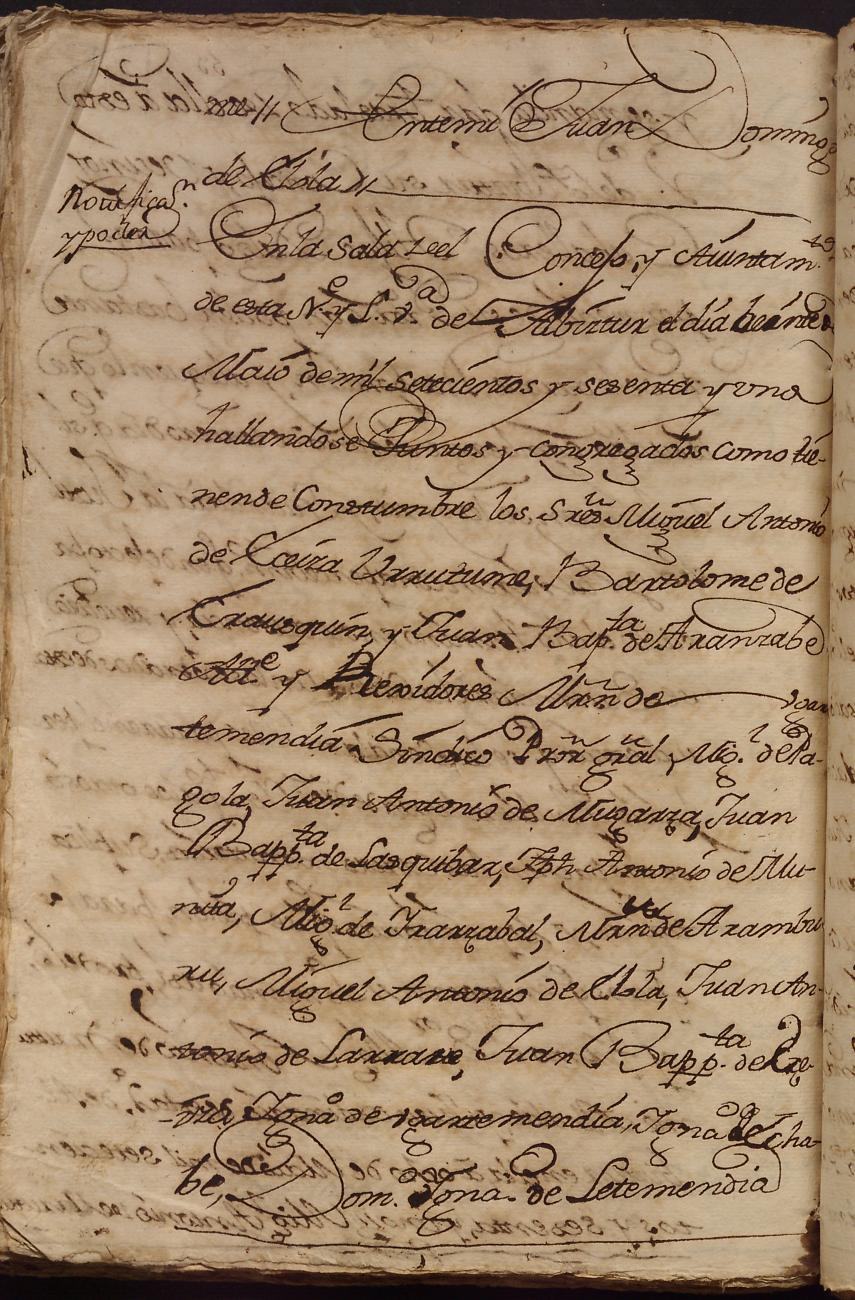 Antemi Juan Domingo
de Elola //
Notificaⁿ.
y poder
En la Sala de el Concejo y Aiuntam.to
de esta N. y L. v.a de Albiztur el dia beinte de
Maio de mil setecientos y sesenta y uno
hallandose Juntos y congregados como tie-
nen de Constumbre los S.res Miguel Antonio
de Eceiza Urrutume, Bartolome de
Erausquin, y Juan Bap.ta de Aranzabe
Al.e y Rexidores Mrn de Ygar
temendia Sindico Pror gral, Mig.l de Pa-
gola, Juan Antonio de Mugarza, Juan
Bapp.ta de Lasquibar, Jph Antonio de Mu-
nita, Mig.l de Irarzabal, Mrn de Arambu
ru, Miguel Antonio de Elola, Juan An-
tonio de Larrarte, Juan Bapp.ta de
Igna.o de Ygartemendia, Igna.o de Echa-
be, Dom. Igna. de Letemendia